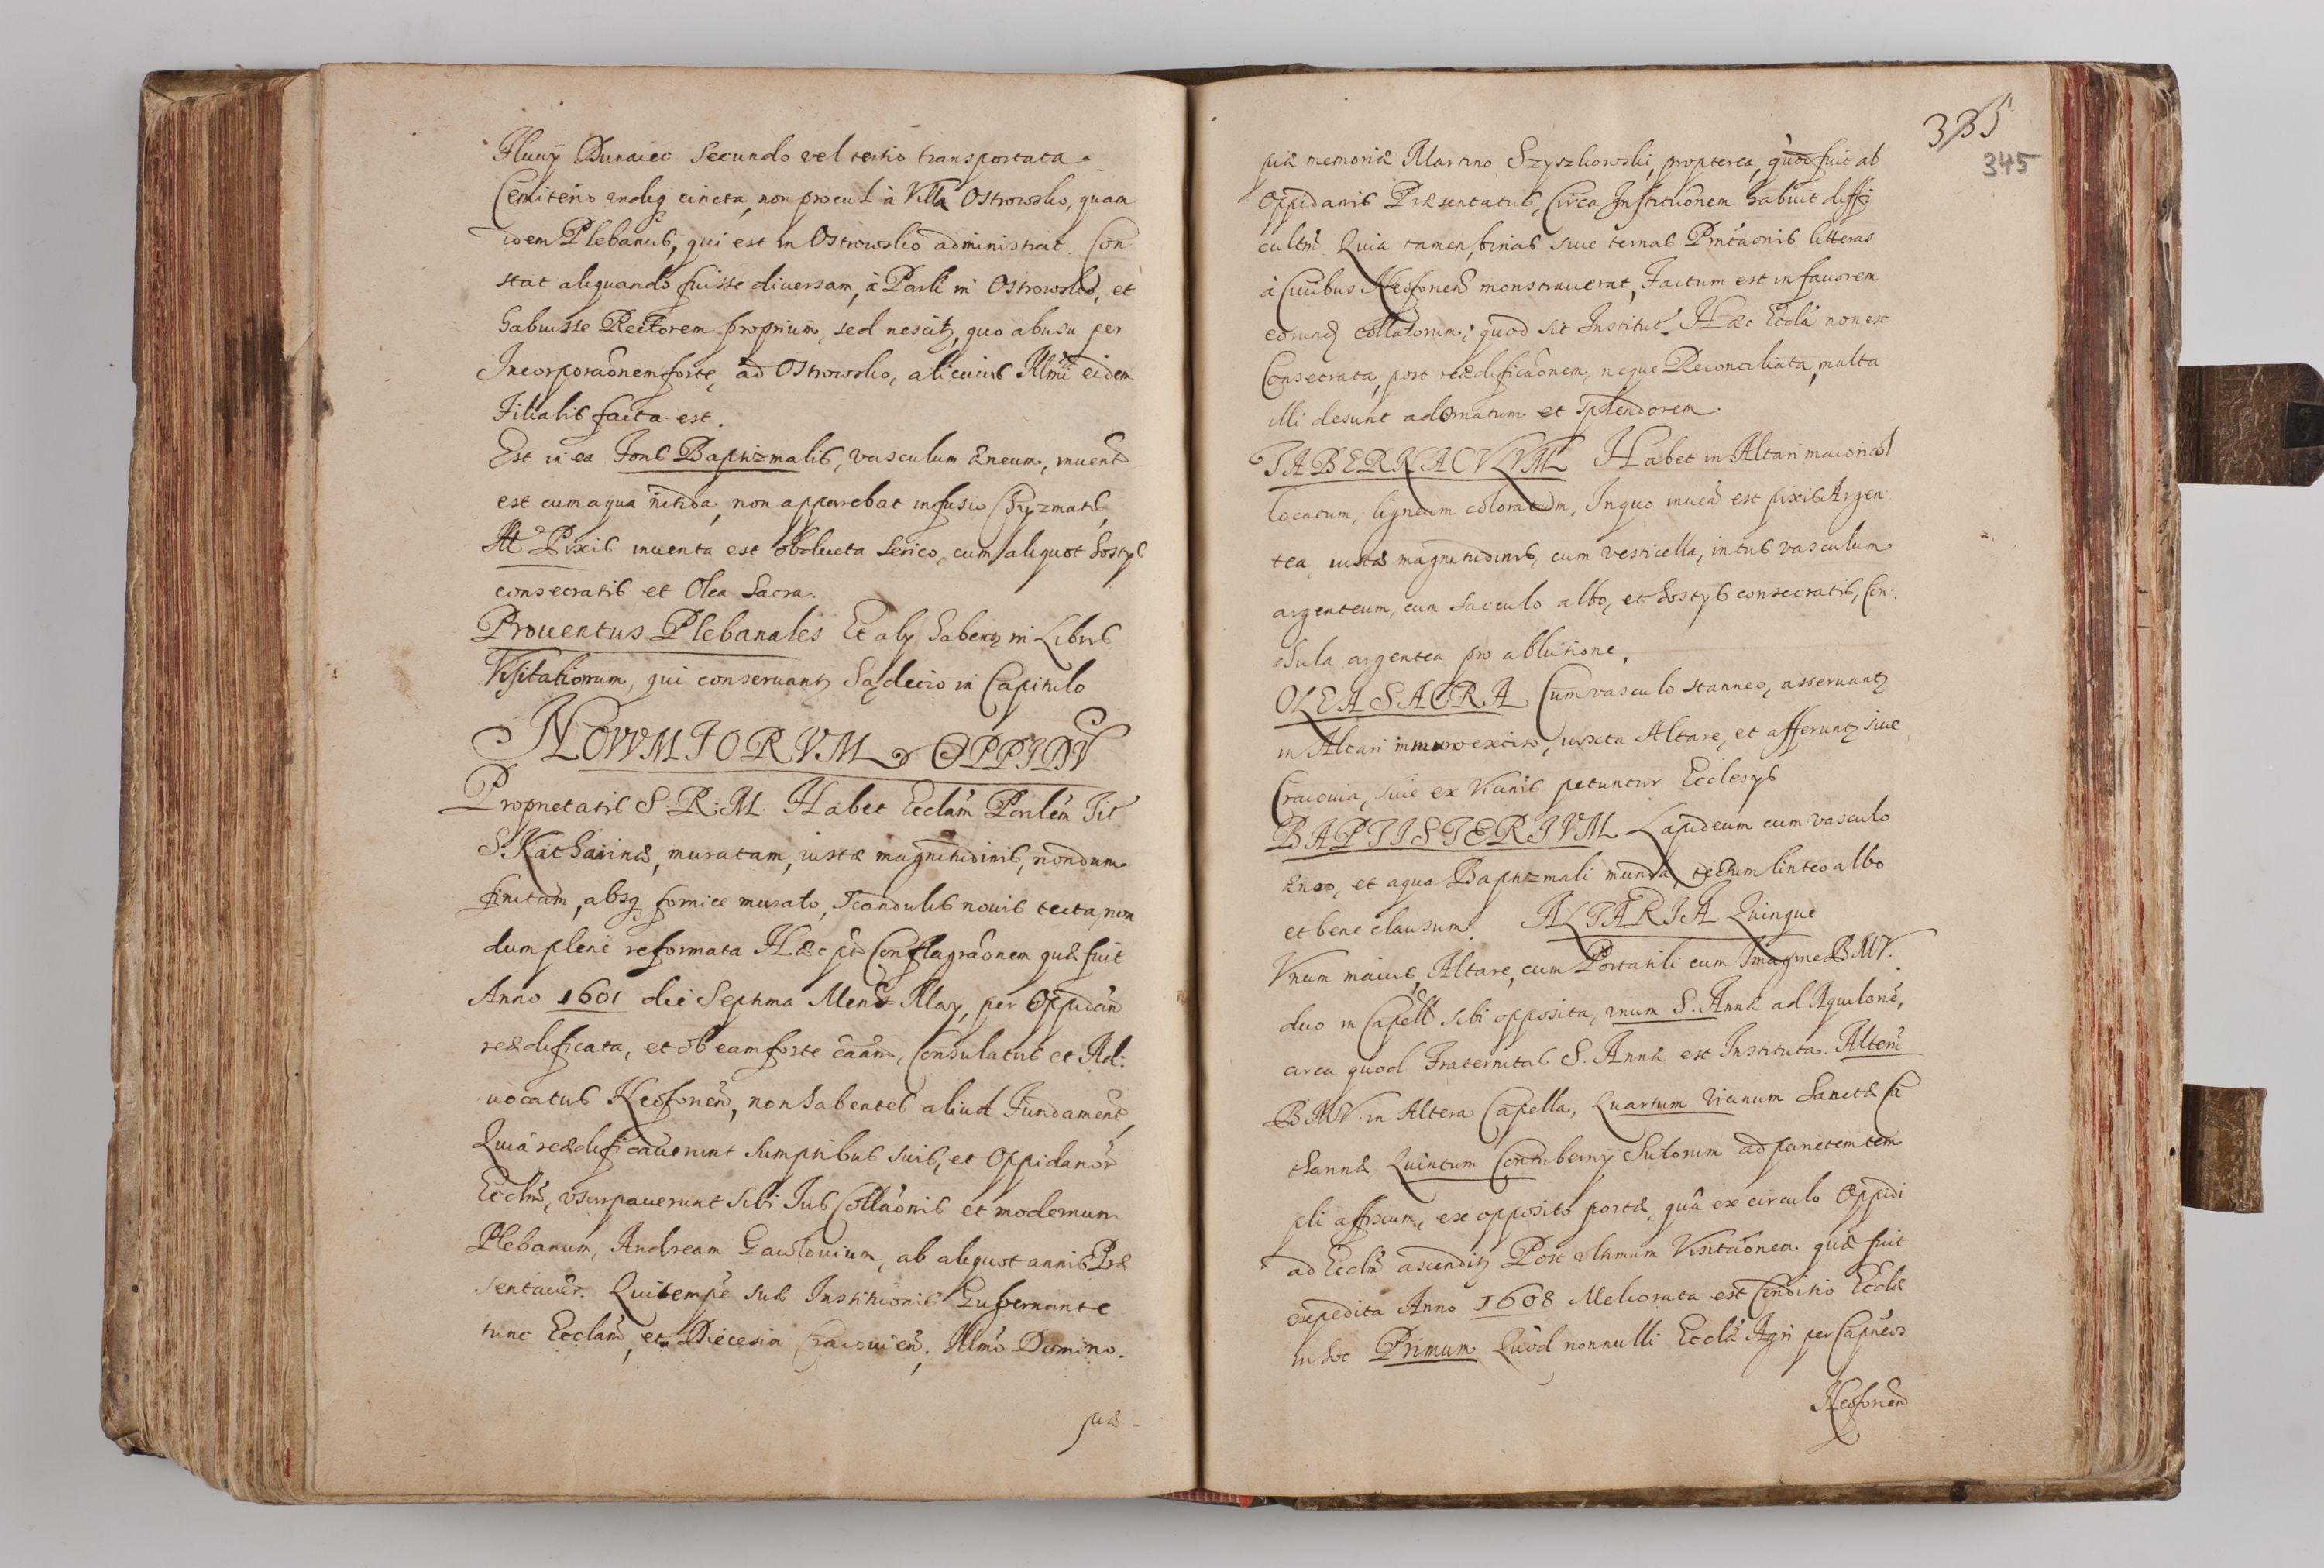 Fluuij Dunaiec Secundo vel tertio transportata
Cemiterio undiq cincta, non procul à Villa Ostrowsko, quam
idem Plebanus, qui est in Ostrowsko administrat. Con
stat aliquando fuisse diuersam, à Parli in Ostrowsko, et
habuisse Rectorem proprium, sed nescitz, quo abusu per
Incorporaõnem forte, ad Ostrowsko, alicuius Illmi eidem
Filialis facta est.
Est in ea Fons Baptizmalis, vasculum æneum, inuent
est cum aqua nitida, non apparebat infusio Chryzmatis,
At Pixis inuenta est obducta serico, cum aliquot hostijs
consecratis et Olea Sacra.
Prouentus Plebanales Et alij habentz in Libris
Visitationum, qui conseruantz Sądecio in Capitulo
NOVVM FORVM OPPIDV
Proprietatis S: R: M: Habet Ecclãm Parlem Tit
S. Katharinæ, muratam, iustæ magnitudinis, nondum
finitam, absq fornice murato, Scandulis nouis tecta, non
dum plenè reformata Hæc pt Conflagrãonem quæ fuit
Anno 1601 die Septima Mens Maij, per Oppidan
reædificata, et ob eam forte cãam, Consulatus et Ad:
uocatus Neoforien, non habentes aliud Fundament,
Quia reædificauerunt sumptibus suis, et Oppidanor
Ecclm, vsurpauerunt sibi Ius Collaõnis et modernum
Plebanum, Andream Gawlouium, ab aliquot annis Præ
sentauer. Qui tempe suæ Institutionis Gubernante
tunc Ecclam, et Diecesim Cracouien, Illmo Domino.
piæ
335
345
piæ memoriæ Martino Szyszkowski, propterea, quod fuit ab
Oppidanis Præsentatus, Circa Institutionem habuit diffi
cultm Quia tamen, binas siue ternas Pntãonis litteras
à Ciuibus Neoforien monstrauerat, Factum est in fauorem
eorund Collatorum, quod sit Institut. Hæc Eccla non est
Consecrata, post reædificaõnem, neque Reconciliata, multa
illi desunt ad Ornatum et Splendorem
TABERNACVLVM Habet in Altari maiori col
locatum, ligneum coloratum, In quo inuen est pixis Argen
tea, iustæ magnitudinis, cum vesticella, intus vasculum
argenteum, cum sacculo albo, et hostijs consecratis, Con:
chula argentea pro ablutione.
OLEA SACRA Cum vasculo stanneo, asseruantz
in Altari in muro exciso, iuxta Altare, et afferuntz siue
Cracouia, siue ex Vicinis petuntur Ecclesijs
BAPTISTERIVM Lapideum cum vasculo
æneo, et aqua Baptizmali munda, tectum linteo albo
et bene clausum. ALTARIA Quinque
Vnum maius, Altare, cum Portatili cum Imagine BMV.
duo in Capell sibi opposita, unum S. Annæ ad Aquilone,
circa quod Fraternitas S. Annæ est Instituta. Alterũ
BMV. in Altera Capella, Quartum Vicinum Sanctæ Ca
tharinæ Quintum Contubernij Sutorum ad parietem tem
pli affixum, ex opposito portæ, quâ ex circulo Oppidi
ad Ecclm ascenditz Post vltimam Visitaõnem quæ fuit
expedita Anno 1608 Meliorata est Conditio Ecclæ
in hoc Primum Quod nonnulli Ecclæ Agri per Capneos
Neoforien